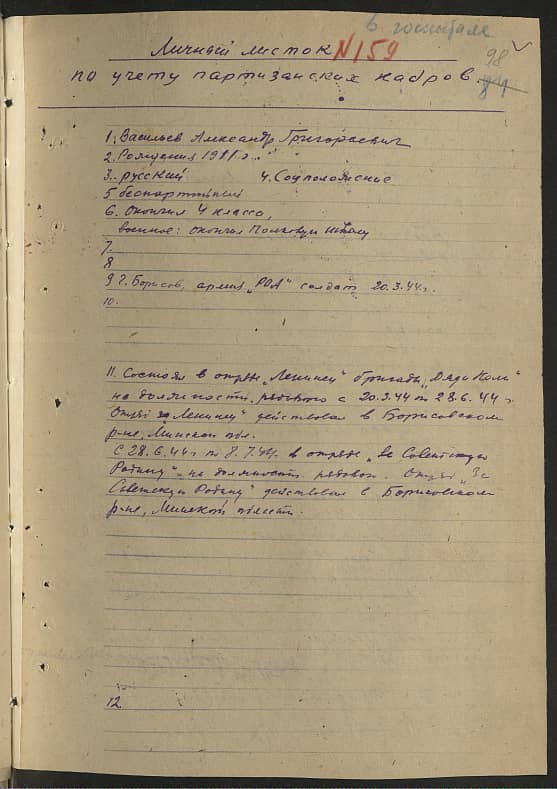 в госпитале
Личный листок №159
98
по учету партизанских кадров.
84
1. Васильев Александр Григорьевич
2. Рождения 1911 г.
3. русский 4. Соцположение
5 беспартийный
6. Окончил 4 класса,
военное: окончил Полковую школу
7.
8
9 г. Борисов, армия "РОА" солдат 20.3.44г.
10.
11. Состоял в отряде "Ленинец" бригады "Дяди Коли"
на должности рядового с 20.3.44 по 28.6.44 г.
Отряд "Ленинец" действовал в Борисовском
р-не, Минской обл.
С 28.6.44 г по 8.7.44г. в отряде "За Советскую
Родину" на должности рядовой. Отряд "За
Советскую Родину" действовал в Борисовском
р-не, Минской области.
12